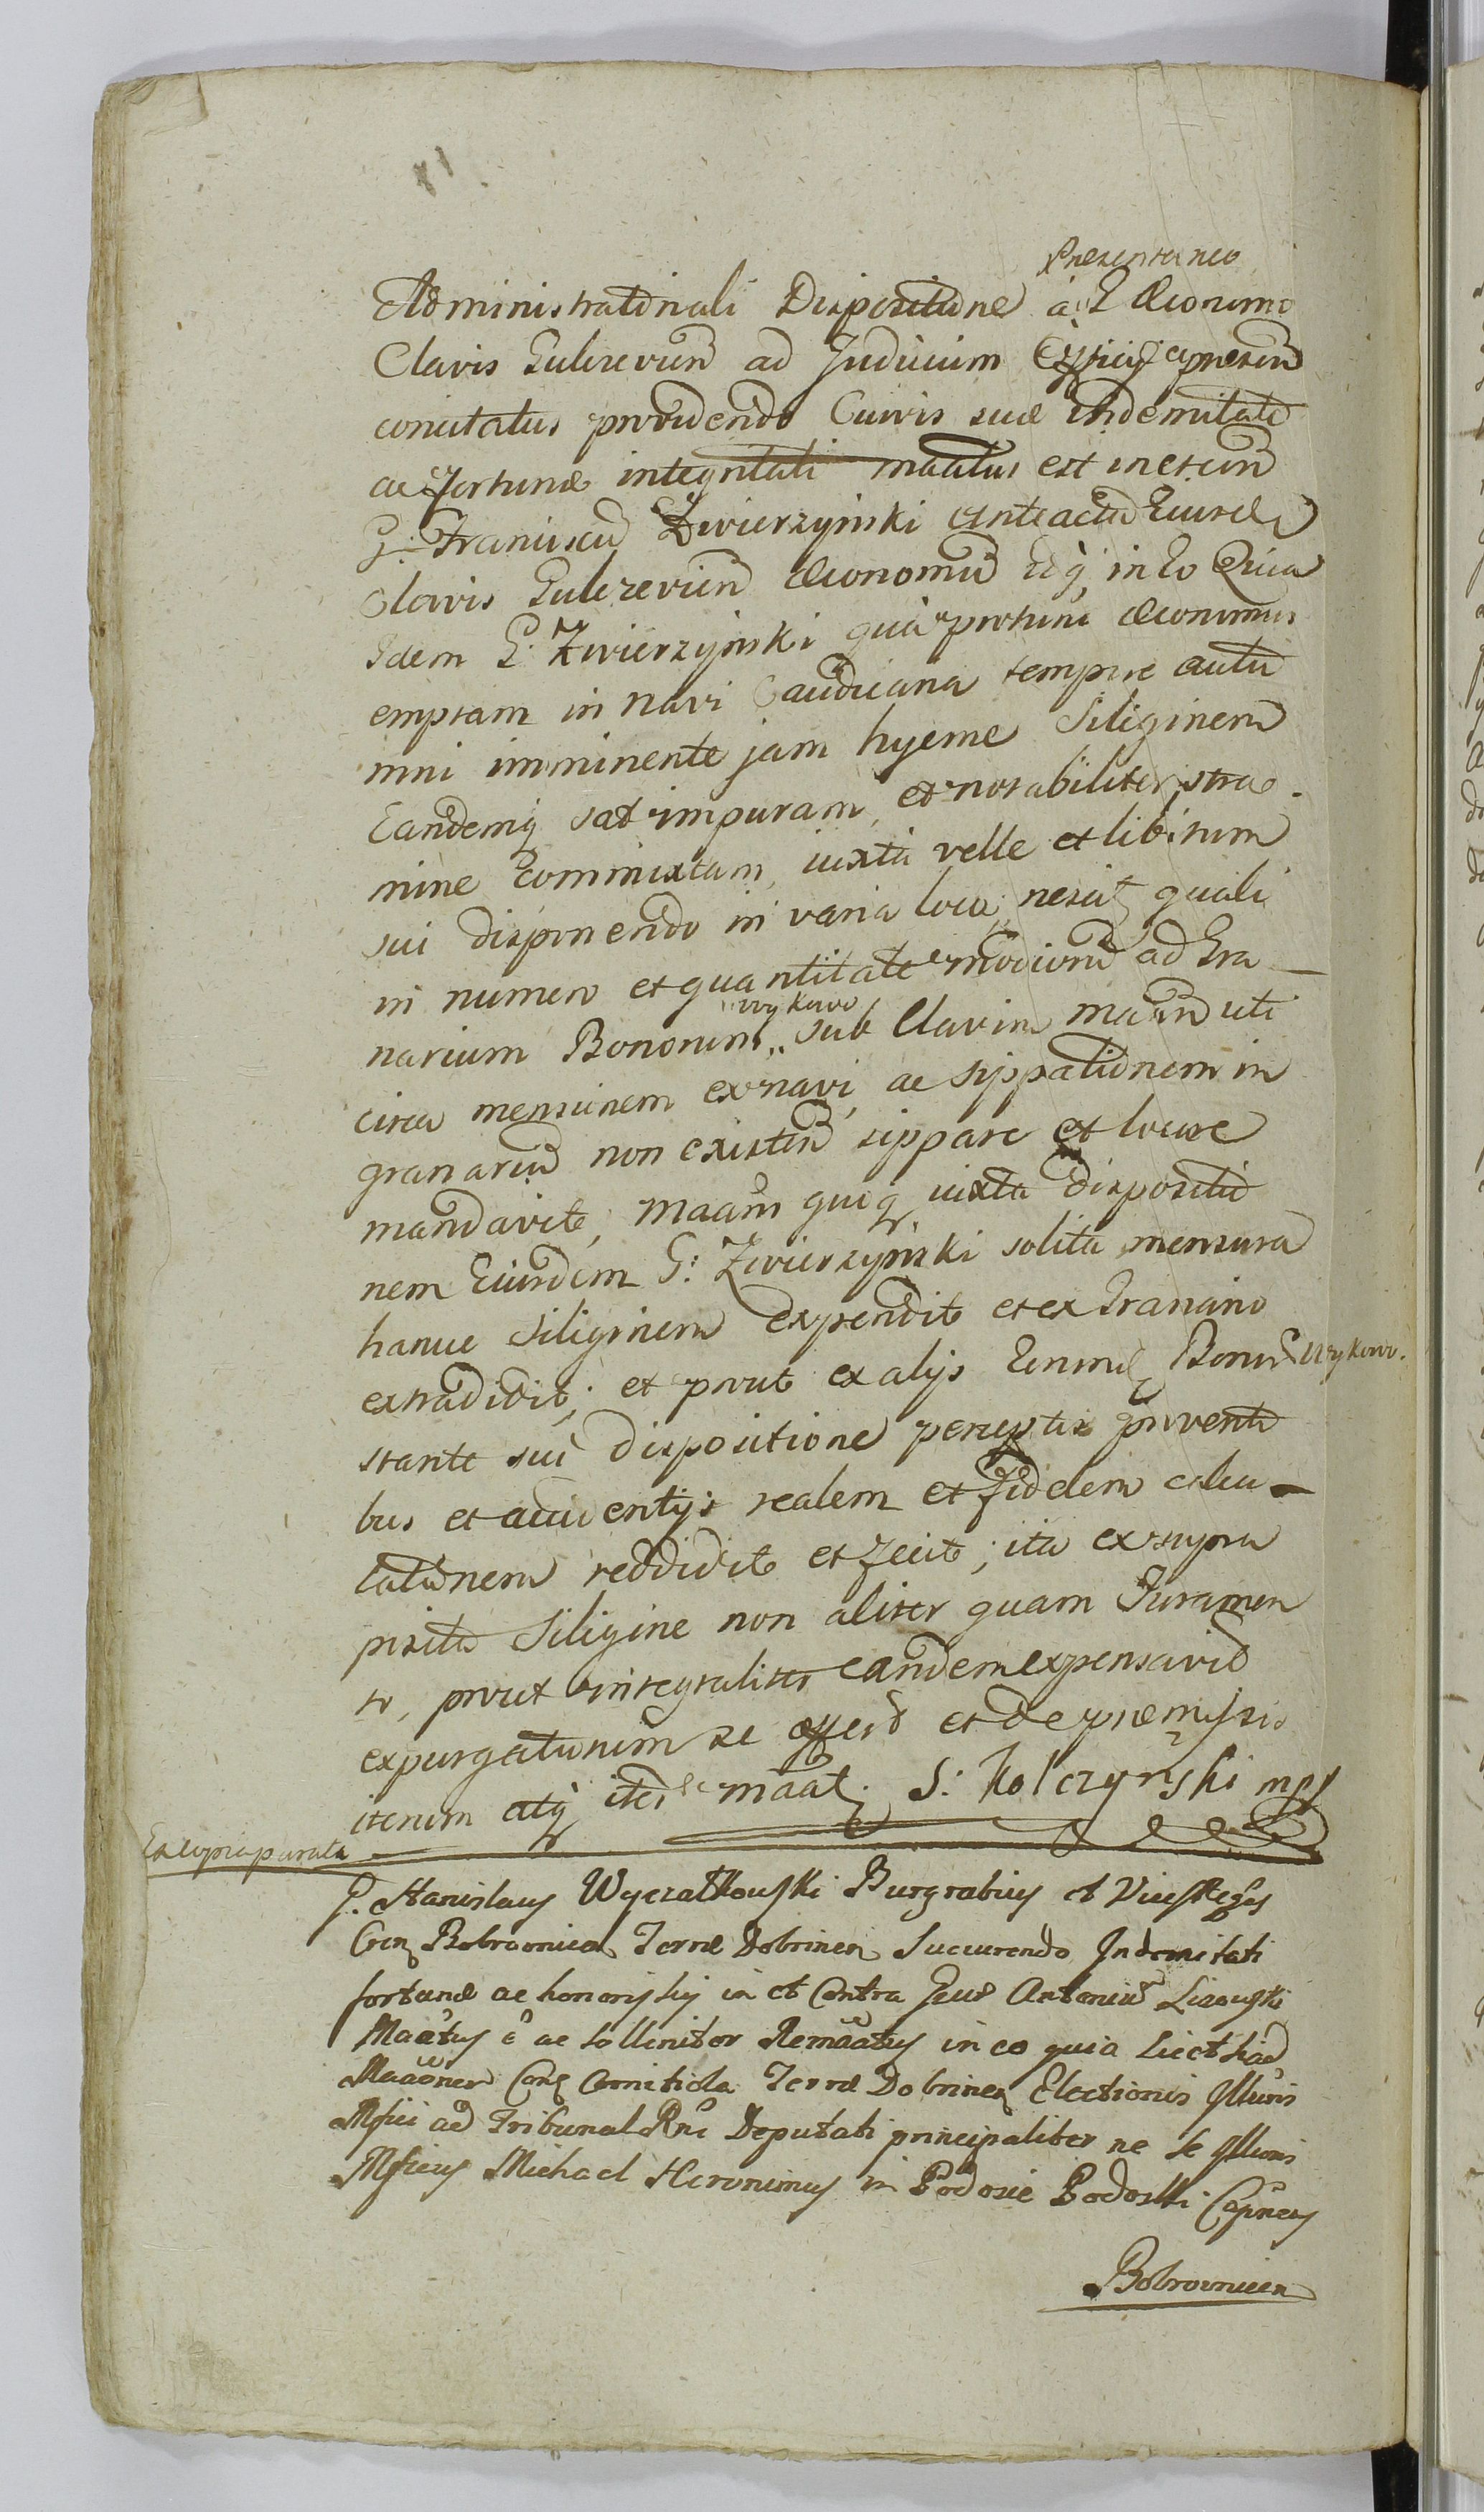 Presentaneo
Administraōnali Dispositiōne à G Œconomo
Clavis Gulczevien̄ ad Judicium Officij
comitatus providendo Cuivis suæ Indemnitati
ac fortunæ integritati maātus est in et con̄
G: Franciscū Zwierzyński Anteactū Eiusd
Clavis Gulczevien̄ Œconomū Idq̀ in Eo Quia
Idem G: Zwierzyński quà protunc œconomus
emptam in navi tempore autu
mni imminente jam hyeme Siliginem
Eandemq̨ sat impuram, et notabiliter stra-
mine commixtam, iuxta velle et libitum
sui disponendo in varia loca, nescit quali
in numero et quantitate modiorū ad Gra-
wykowo
narium Bonorum " sub Clavim maān uti
circa mensionem ex navi, ac sippatiōnem in
granariū non existen̄ sippare et locare
mandavit, Maāns quoq̨ iuxta dispositiō
nem Eiusdem G: Zwierzyński solita mensura
hancce Siliginem expendit et ex Granario
extradidit; et prout ex alijs Bonor̄ Wykowo.
stante sui dispositione perceptis proventi
bus et accidentijs realem et fidelem calcu-
latiōnem reddidit et fecit; ita ex supra
posita Siligine non aliter quam Juramen
to, prout integraliter eandem expensavit
expurgaturum se offert et de præmissis
iterum atq̀ iter̄ maāt. S: Kolczyński mpp
Ex copia parata
G. Stanislaus Wyczałkowski Burgrabius et Vicesges
Cren Bobrovnicen Terræ Dobrinen Succurendo Indemnitati
fortunæ ac honoris sui in et Contra Gsum Antoniū Lisowski
Maātus ē ac solleniter Remaātus in eo quia licet
Maāōner Comitiola Terræ Dobrinen Electionis Illuris
Mfici ad Tribunal Rni Deputati principaliter ne se Illuris
Mficus Michael Heronimus in Podosie Podoski Capneus
Bobrovnicen